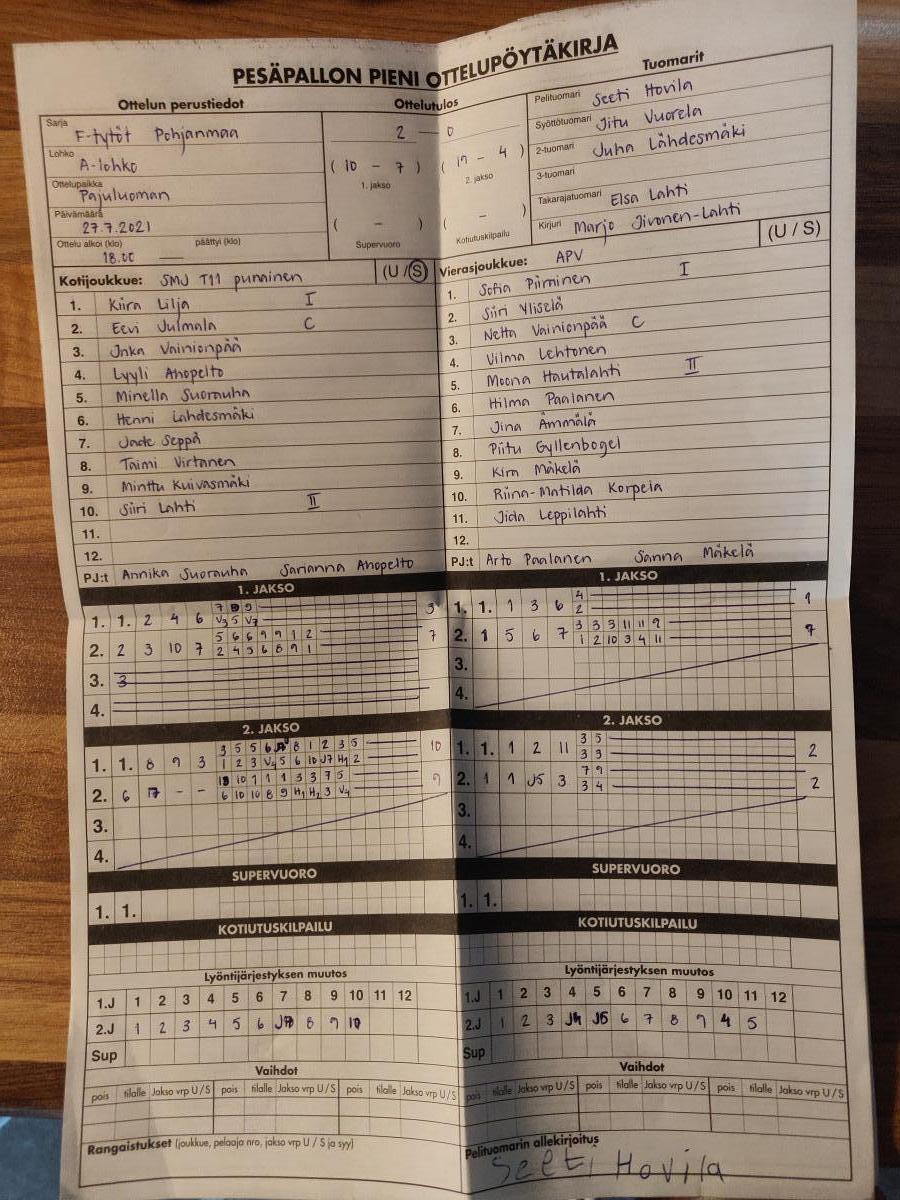 PESÄPALLON PIENI OTTELUPÖYTÄKIRJA
Ottelun perustiedot
Ottelutulos
Tuomarit
Sarja F-tytöt Pohjanmaa
Lohko A-lohko
Ottelupaikka Pajuluoman
Päivämäärä 27.7.2021
Ottelu alkoi (klo) 18.00 päättyi (klo) —
2 — 0
( 10 - 7 ) 1. jakso
( 19 - 4 ) 2. jakso
( - ) Supervuoro
( - ) Kotiutuskilpailu
Pelituomari Seeti Hovila
Syöttötuomari Jitu Vuorela
2-tuomari Juha Lähdesmäki
3-tuomari
Takarajatuomari Elsa Lahti
Kirjuri Marjo Jivonen-Lahti
Kotijoukkue: SMJ T11 punainen (U / S)
1. Kiira Lilja I
2. Eevi Julmala C
3. Jnka Vainionpää
4. Lyyli Ahopelto
5. Minella Suorauha
6. Henni Lahdesmäki
7. Jade Seppä
8. Taimi Virtanen
9. Minttu Kuivasmäki
10. Siiri Lahti II
11.
12.
PJ:t Annika Suorauha Sarianna Ahopelto
Vierasjoukkue: APV (U / S)
1. Sofia Piiminen I
2. Siiri Yliselä
3. Netta Vainionpää C
4. Vilma Lehtonen
5. Moona Hautalahti II
6. Hilma Paalanen
7. Jina Ämmälä
8. Piitu Gyllenbogel
9. Kira Mäkelä
10. Riina-Matilda Korpela
11. Jida Leppilahti
12.
PJ:t Arto Paalanen Sanna Mäkelä
1. JAKSO
1. 1. 2 4 6 3
2. 2 3 10 7 5 6 6 9 9 1 2 7
2 4 5 6 8 9 1
3. 3
4.
1. JAKSO
1. 1. 1 3 6 4
2
2. 1 5 6 7 3 3 3 11 11 9
1 2 10 3 4 11
3.
4.
2. JAKSO
1. 1. 8 9 3 10
2. 6 17 - - 9
3.
4.
2. JAKSO
1. 1. 1 2 11 3 5 2
3 3
2. 1 1 J5 3 7 9 2
3 4
3.
4.
SUPERVUORO
1. 1.
SUPERVUORO
1. 1.
KOTIUTUSKILPAILU
KOTIUTUSKILPAILU
Lyöntijärjestyksen muutos
1.J 1 2 3 4 5 6 7 8 9 10 11 12
2.J 1 2 3 4 5 6 8 9 10
Sup
Lyöntijärjestyksen muutos
1.J 1 2 3 4 5 6 7 8 9 10 11 12
2.J 1 2 3 J4 J5 6 7 8 9 4 5
Sup
Vaihdot
pois tilalle Jakso vrp U / S pois tilalle Jakso vrp U / S pois tilalle Jakso vrp U / S
Vaihdot
pois tilalle Jakso vrp U / S pois tilalle Jakso vrp U / S pois tilalle Jakso vrp U / S
Rangaistukset (joukkue, pelaaja nro, jakso vrp U / S ja syy)
Pelituomarin allekirjoitus
Seeti Hovila